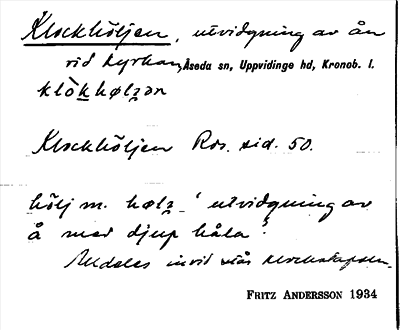 Klockhöljen, utvidgning av ån
vid kyrkan, Åseda sn, Uppvidinge hd, Kronob. l.
klòkhølʒən
Klockhöljen Ros. sid. 50.
hölj m. hølʒ - 'utvidgning av
å med djup håla'.
Alldeles invid vår klockstapeln.
FRITZ ANDERSSON 1934